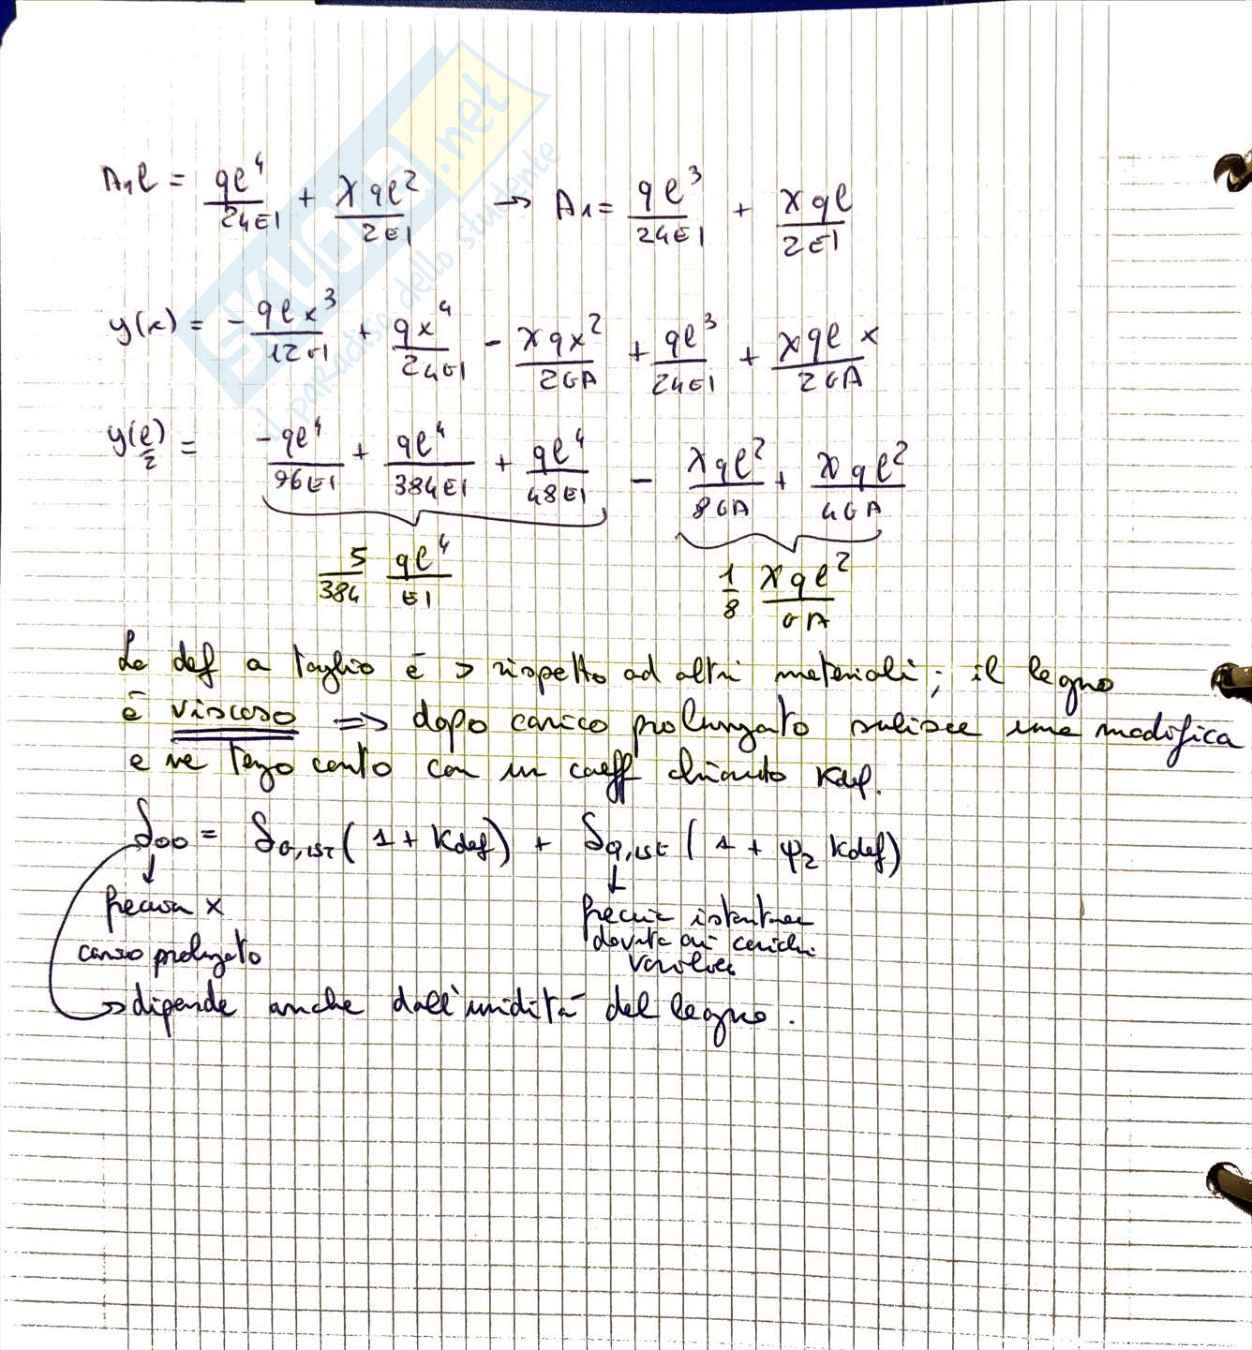 A₁l = ql⁴/24EI + χql²/2EI → A₁ = ql³/24EI + χql/2EI
y(x) = - qlx³/12EI + qx⁴/24EI - χqx²/2GA + ql³/24EI + χqlx/2GA
y(l/2) = -ql⁴/96EI + ql⁴/384EI + ql⁴/48EI - χql²/8GA + χql²/4GA
5/384 ql⁴/EI 1/8 χql²/GA
La def a taglio è > rispetto ad altri materiali; il legno
è viscoso => dopo carico prolungato subisce una modifica
e ne tengo conto con un coeff chiamato Kdef.
δ∞ = δG,IST (1 + Kdef) + δq,ist (1 + φ₂ Kdef)
freccia x
carico prolungato
freccia istantanea
dovuta ai carichi
variabili
→ dipende anche dall'umidità del legno.
SKUOLA.net
il paradiso dello studente